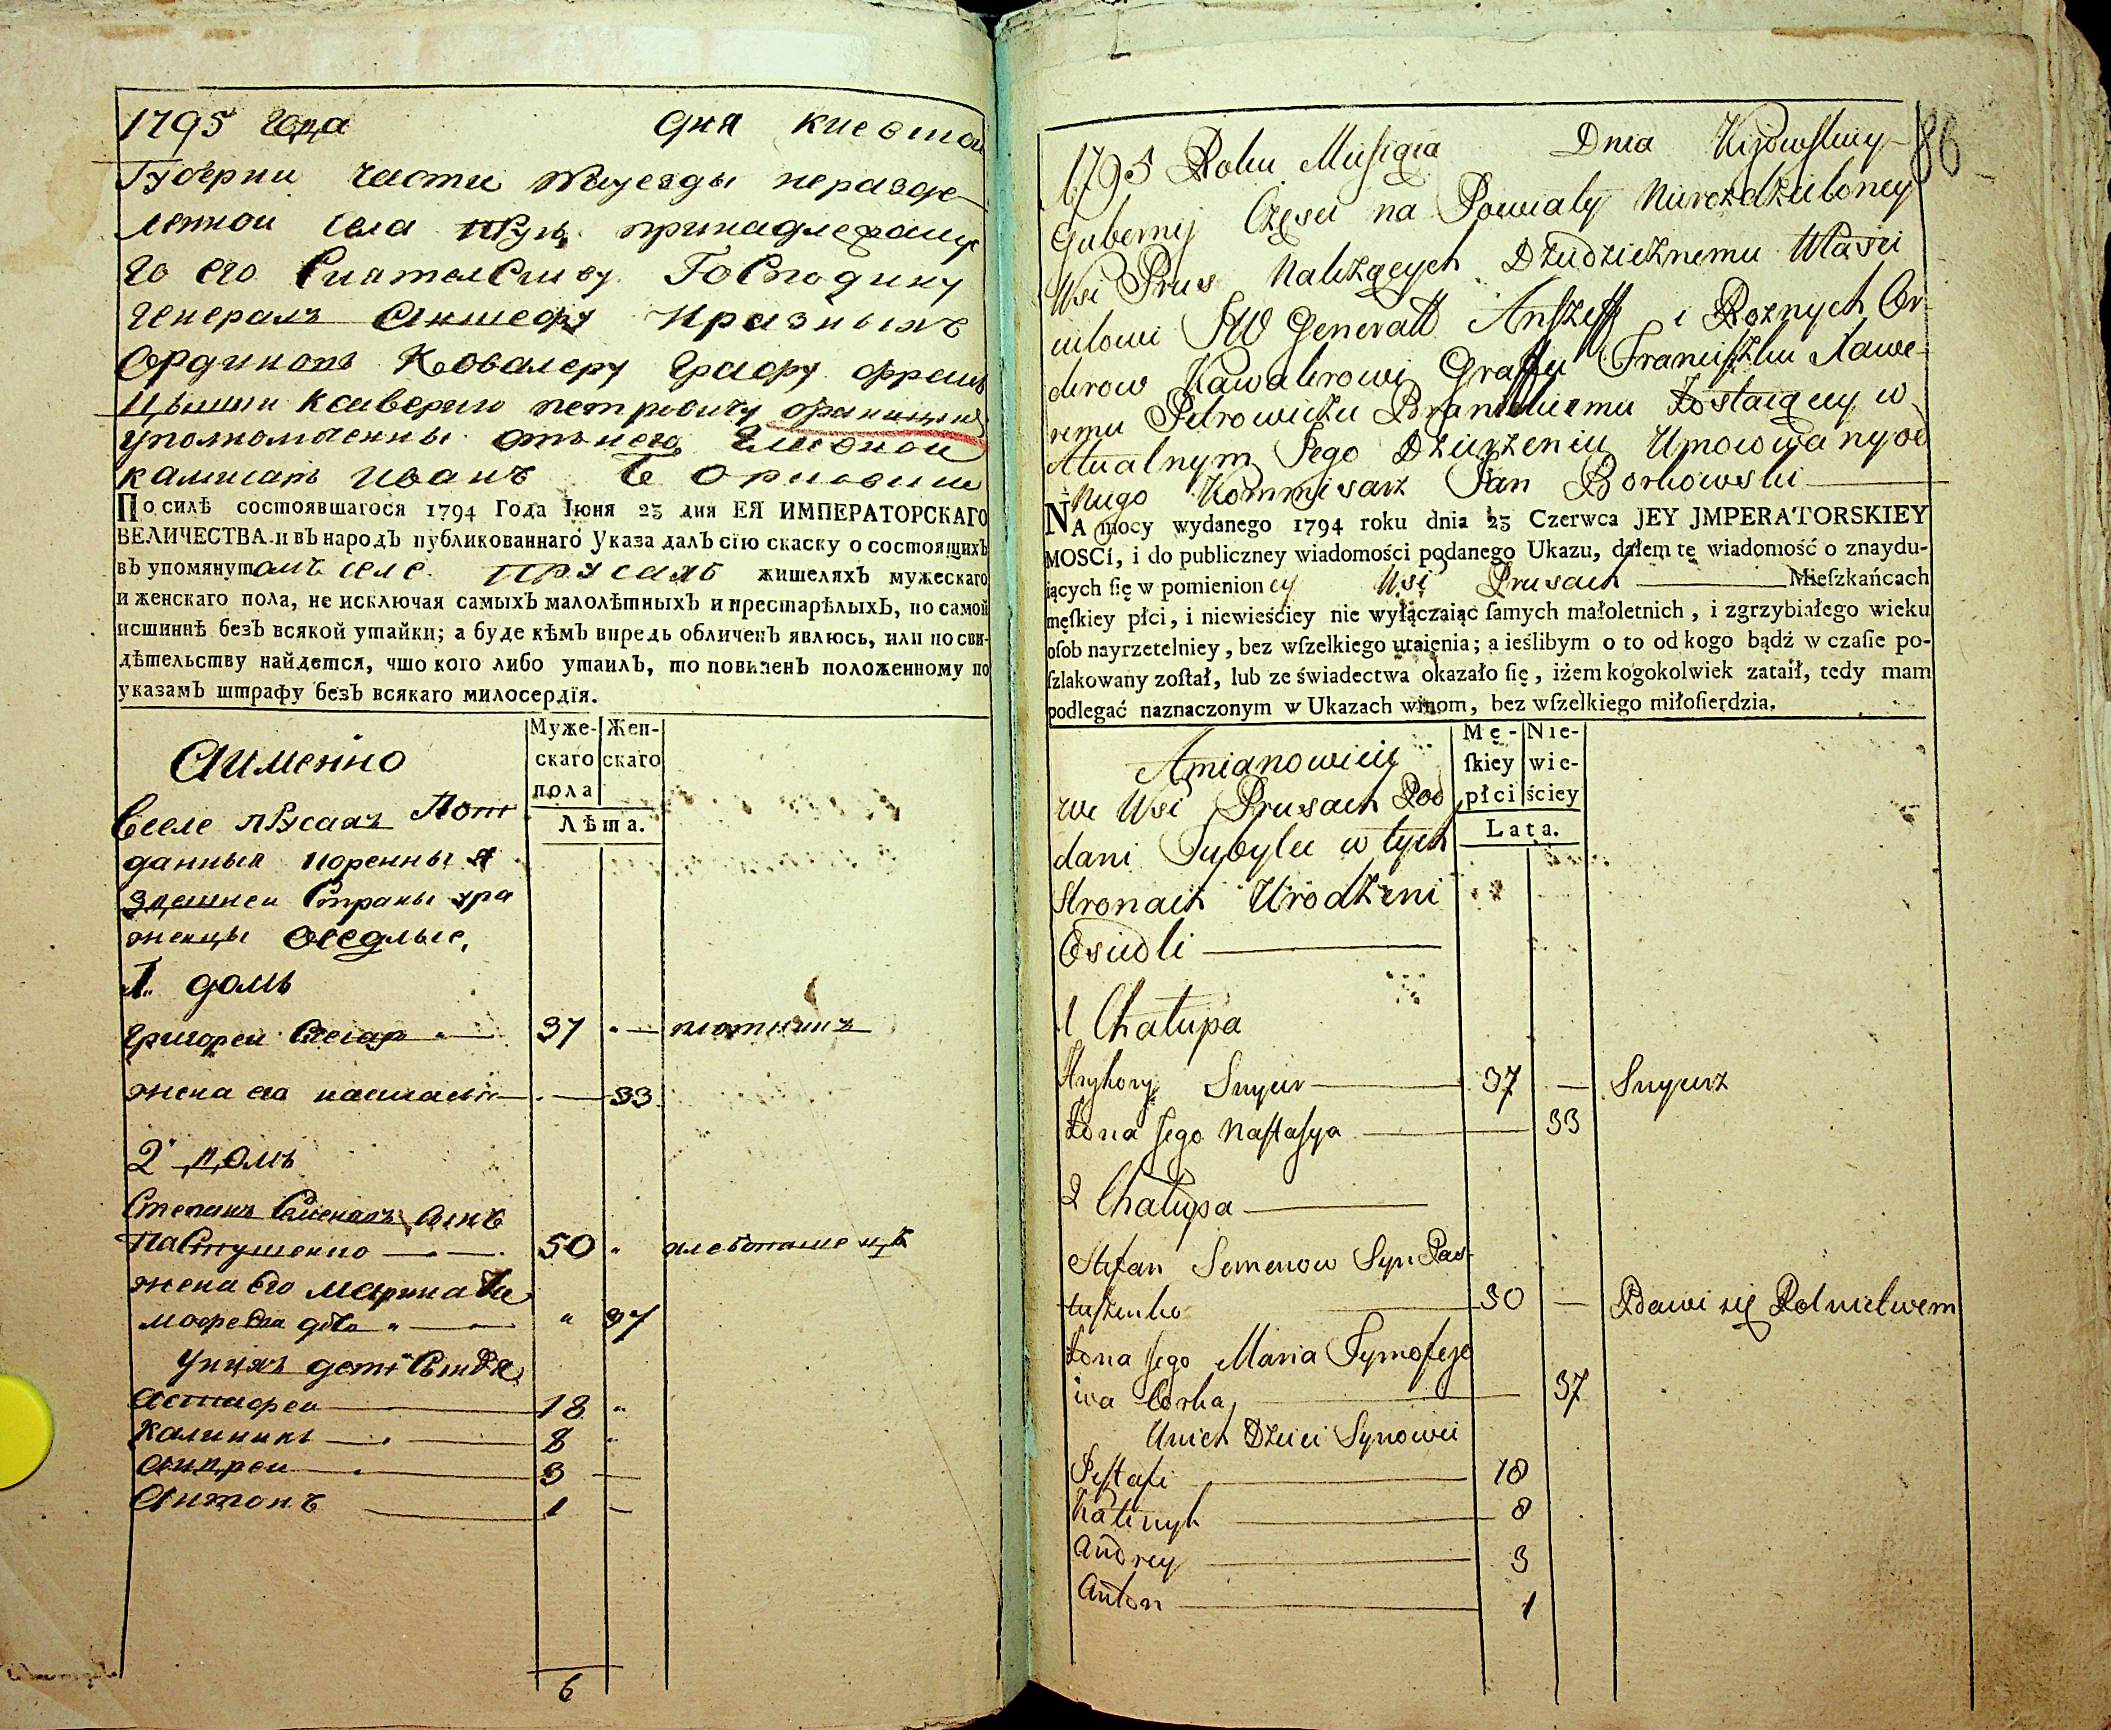 1795 года дня киевской
Губернии части науезды неразде
ленной села Прус принадлежаще
го Его Сиятелству Господину
Генералъ Аншефу И разныхъ
Ординовъ Ковалеру Графу Фран
цышки Ксаверию петровичу браницки
уполномоченны отънего Главной
камисаръ Иванъ Борковски
По силѣ состоявшагося 1794 Года Іюня 23 дня ЕЯ ИМПЕРАТОРСКАГО
ВЕЛИЧЕСТВА и въ народъ публикованнаго Указа далъ сію скаску о состоящихъ
въ упомянутомъ селе прусахъ жителяхъ мужескаго
и женскаго пола, не исключая самыхъ малолѣтныхъ и престарѣлыхъ, по самой
истиннѣ безъ всякой утайки; а буде кѣмъ впредь обличенъ явлюсь, или по сви-
дѣтельству найдется, что кого либо утаилъ, то повиненъ положенному по
указамъ штрафу безъ всякаго милосердія.
Аименно
Муже-
скаго
пола
Жен-
скаго
Лѣта.
Вселе прусахъ Пот
данныя коренныя
здешнеи Страны ура
женцы Оседлые,
1 домъ
Григореи Снегар 37 „ — плотникъ
жена его настася — 33
2 домъ
Степанъ Семеновъ Сынъ
Пастушенко — 50 „ хлебопашецъ
жена Его Марина Ти
мофеева дочь „ — „ 37
Унихъ дети Сыновя
Астафеи — 18 „
Калиникъ — 8 „
Андреи — 3 —
Антонъ — 1 —
6
86
1795 Roku Miesiąca Dnia Kijowskiey
Gubernij Częsci na Powiaty Nierozdzieloney
Wsi Prus Nalezących Dziedzicznemu Właści
cielowi JW Generałł Anszeff i Roznych Or
derow Kawalerowi Graffu Franciszku Xawe-
remu Petrowiczu Branickiemu Zostaiący w
Atualnym Jego Dzierzeniu Umocowany od
Niego Kommisarz Jan Borkowski
NA mocy wydanego 1794 roku dnia 23 Czerwca JEY JMPERATORSKIEY
MOSCI, i do publiczney wiadomości podanego Ukazu, dałem tę wiadomość o znaydu-
iących ſię w pomienioney Wsi Prusach Mieſzkańcach
męſkiey płci, i niewieściey nie wyłączaiąc ſamych małoletnich, i zgrzybiałego wieku
oſob nayrzetelniey, bez wſzelkiego utaienia; a ieślibym o to od kogo bądź w czaſie po-
ſzlakowany zoſtał, lub ze świadectwa okazało ſię, iżem kogokolwiek zataił, tedy mam
podlegać naznaczonym w Ukazach winom, bez wſzelkiego miłoſierdzia.
Amianowicie
Mę-
ſkiey
płci
Nie-
wie-
ściey
Lata.
we Wsi Prusach Pod
dani Tubylce w tych
stronach Urodzeni
Osiedli
1 Chałupa
Hryhory Snycer 37 — Snycerz
Zona Jego Nastasya 33
2 Chałupa
Stefan Semenow Syn Pas-
tuszenko 50 — Bawi się Rolnictwem
Zona Jego Maria Tymofeio
wa Corka 37
Unich Dzieci Synowie
Jestafi 18
Kalinyk 8
Andrey 3
Anton 1